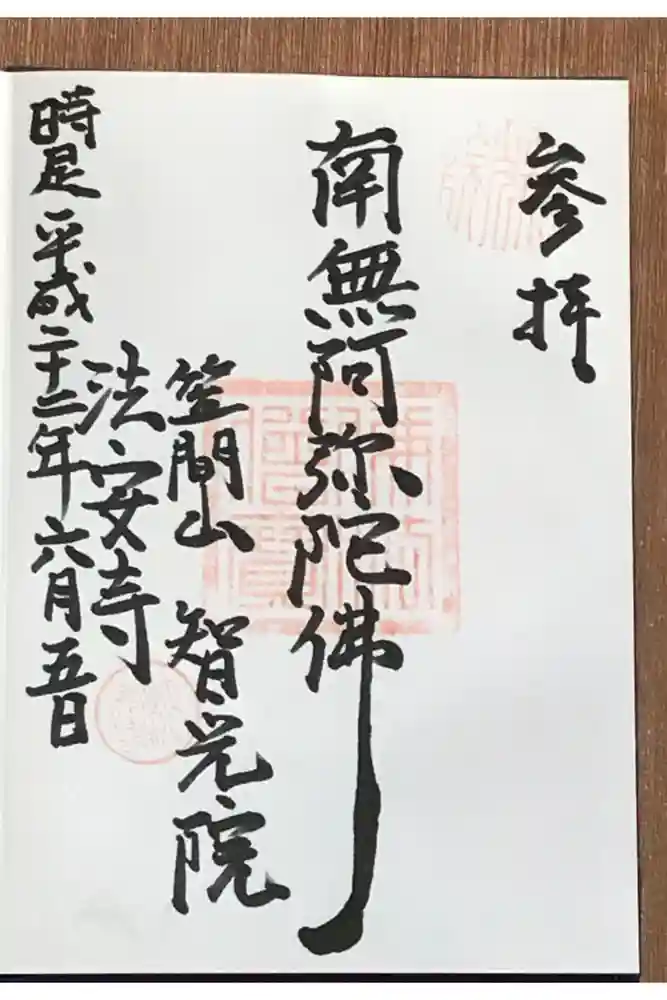 参拝
南無阿弥陀佛
笠間山 智光院
法安寺
時是平成二十二年六月五日